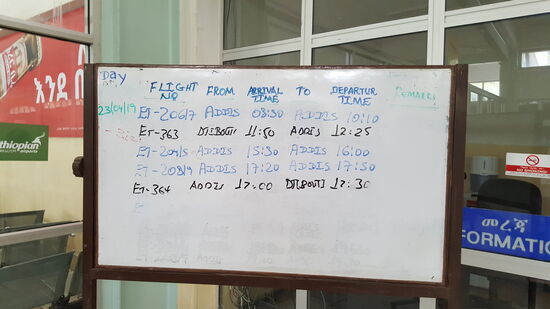 Day
FLIGHT NO FROM ARRIVAL TIME TO DEPARTUR TIME Remark
23/04/19 ET-206/7 ADDIS 08:30 ADDIS
ET-363 DJIBOUTI 11:50 ADDIS 12:25
ET-204/5 ADDIS 15:30 ADDIS 16:00
ET-208/9 ADDIS 17:20 ADDIS 17:50
ET-364 ADDIS 17:00 DJIBOUTI 17:30
E
thiopian
መረጃ
FORMATIO
NO SMOKING